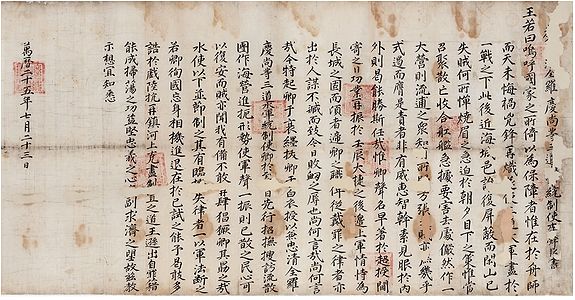 全羅慶尚等三道 統制使 書
王若曰嗚呼國家之所倚以爲保障者惟在於舟師
而天未悔禍兇鋒再熾 軍盡於
一戰之下此後近海城邑誰復屏蔽而閑山已
失賊何所憚燒眉之急迫於朝夕目下之策惟當
召聚散亡收合船艦急據要害去處儼然作一
大營則流逋之衆知有所 方張 賊亦 幾乎
式遏而膺是責者非有威惠智幹素見服於內
外則曷能勝斯任哉惟卿聲名早著於超授閫
寄之日功業再振於壬辰大捷之後邊上軍情恃為
長城之固而頃者遞卿之職俾從戴罪之律者亦
出於人謀不臧而致今日敗衄之辱也尚何言哉尚何言
哉今特起卿于墨縗拔卿于白衣授以兼忠清全羅
慶尚等三道水軍統制使卿於至之日先行招撫搜訪流散
團作海營進扼形勢使軍聲一振則已散之民心可
以復安而賊亦聞我有備不敢再肆猖獗卿其勗之哉
水使以下並節制之其有臨 失律者一以軍法斷之
若卿徇國忘身相機進退在於已試之能予曷敢多
誥於戲陸抗再鎮河上克盡制置之道王遜出自罪籍
能成掃蕩之功益堅忠義之心 副求濟之望故茲教
示想宜知悉
萬曆二十五年七月二十三日